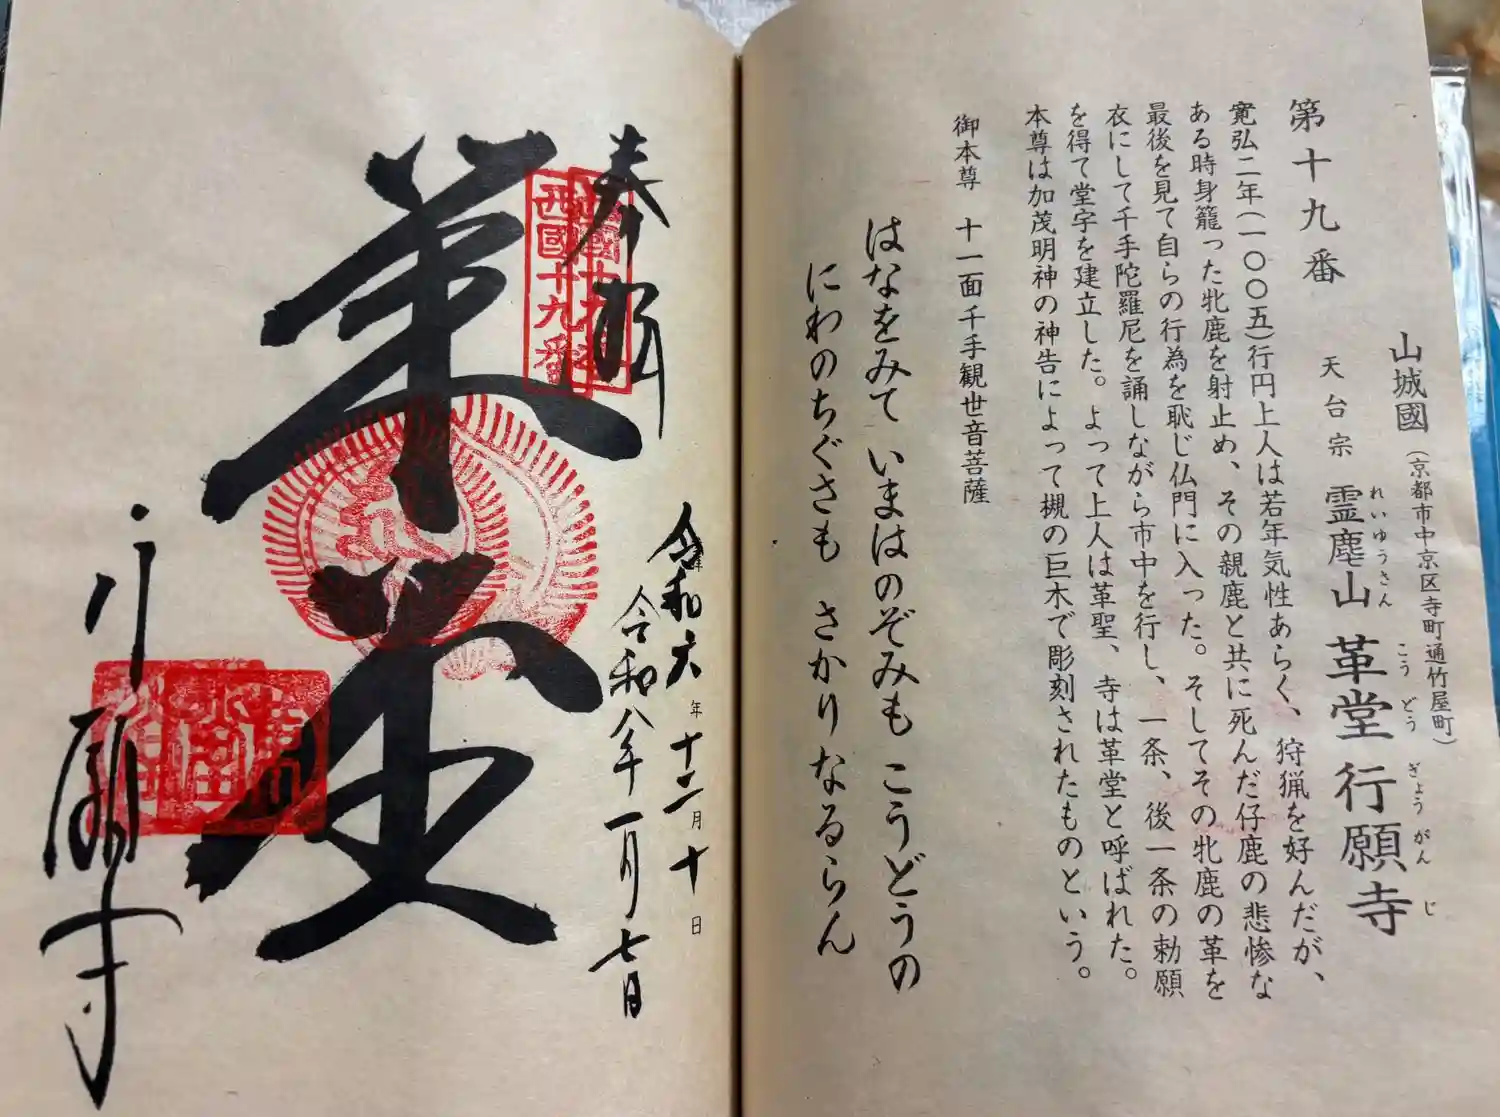 山城國(京都市中京区寺町通竹屋町)
第十九番
天台宗 霊麀山 革堂 行願寺
れいゆうさん こうどう ぎょうがんじ
寛弘二年(一〇〇五)行円上人は若年気性あらく、狩猟を好んだが、
ある時身籠った牝鹿を射止め、その親鹿と共に死んだ仔鹿の悲惨な
最後を見て自らの行為を恥じ仏門に入った。そしてその牝鹿の革を
衣にして千手陀羅尼を誦しながら市中を行し、一条、後一条の勅願
を得て堂宇を建立した。よって上人は革聖、寺は革堂と呼ばれた。
本尊は加茂明神の神告によって槻の巨木で彫刻されたものという。
御本尊 十一面千手観世音菩薩
はなをみて いまはのぞみも こうどうの
にわのちぐさも さかりなるらん
奉拝
西國十九番
令和六年十二月十日
令和八年一月七日
革堂
行願寺